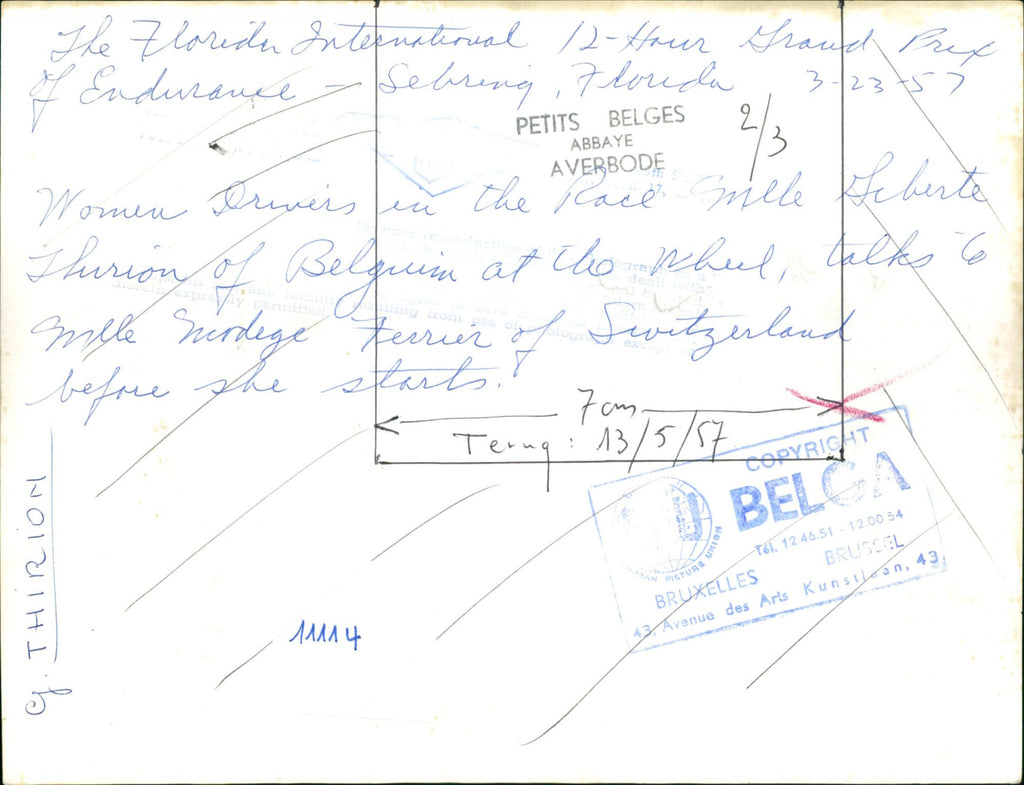 The Florida International 12-Hour Grand Prix
of Endurance - Sebring, Florida 3-23-57
PETITS BELGES
ABBAYE
AVERBODE
2/3
Women Drivers in the Race Mlle Giberte
Thirion of Belguim at the wheel, talks to
Mlle Ferrier of Switzerland
before she starts.
7 cm
Terug: 13/5/57
COPYRIGHT
BELGA
PICTURE UNION
Tél. 12 46.51 - 12.00 54
BRUXELLES BRUSSEL
43, Avenue des Arts Kunstlaan, 43
11114
G. THIRION
herein expressly permitted